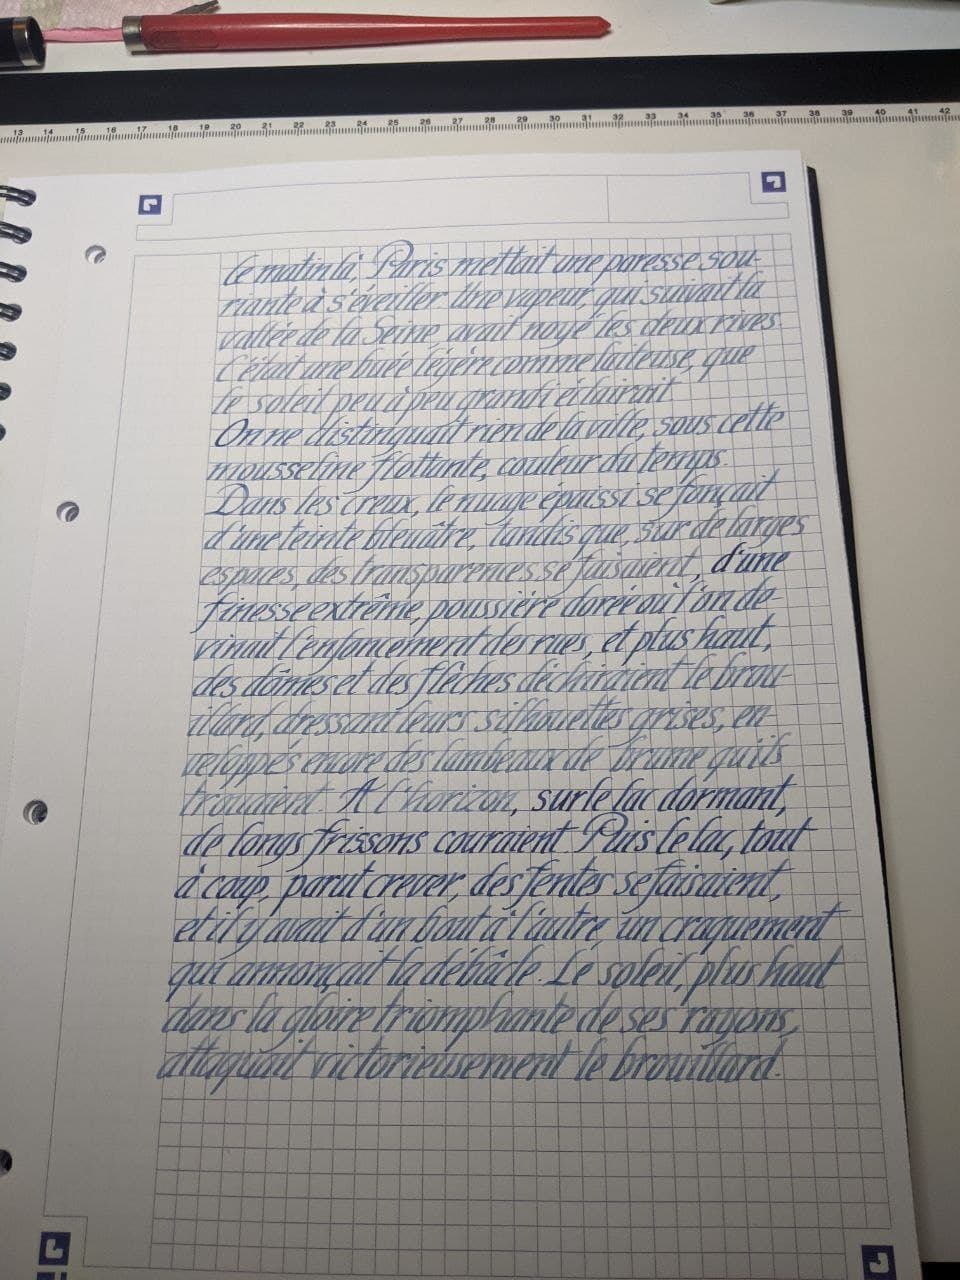 13 14 15 16 17 18 19 20 21 22 23 24 25 26 27 28 29 30 31 32 33 34 35 36 37 38 39 40 41 42
Ce matin là, Paris mettait une paresse sou-
riante à s'éveiller. Une vapeur, qui suivait la
vallée de la Seine, avait noyé les deux rives.
C'était une buée légère comme laiteuse, que
le soleil peu à peu grandi éclairait.
On ne distinguait rien de la ville, sous cette
mousseline flottante, couleur du temps.
Dans les creux, le nuage épaissi se fonçait
d'une teinte bleuâtre, tandis que, sur de larges
espaces, des transparences se faisaient, d'une
finesse extrême, poussière dorée où l'on de-
vinait l'enfoncement des rues, et plus haut,
des dômes et des flèches déchiraient le brou-
illard, dressant leurs silhouettes grises, en-
veloppés encore des lambeaux de brume qu'ils
trouaient. A l'horizon, sur le lac dormant,
de longs frissons couraient. Puis le lac, tout
à coup, parut crever, des fentes se faisaient,
et il y avait d'un bout à l'autre, un craquement
qui annonçait la débâcle. Le soleil, plus haut
dans la gloire triomphante de ses rayons,
attaquait victorieusement le brouillard.